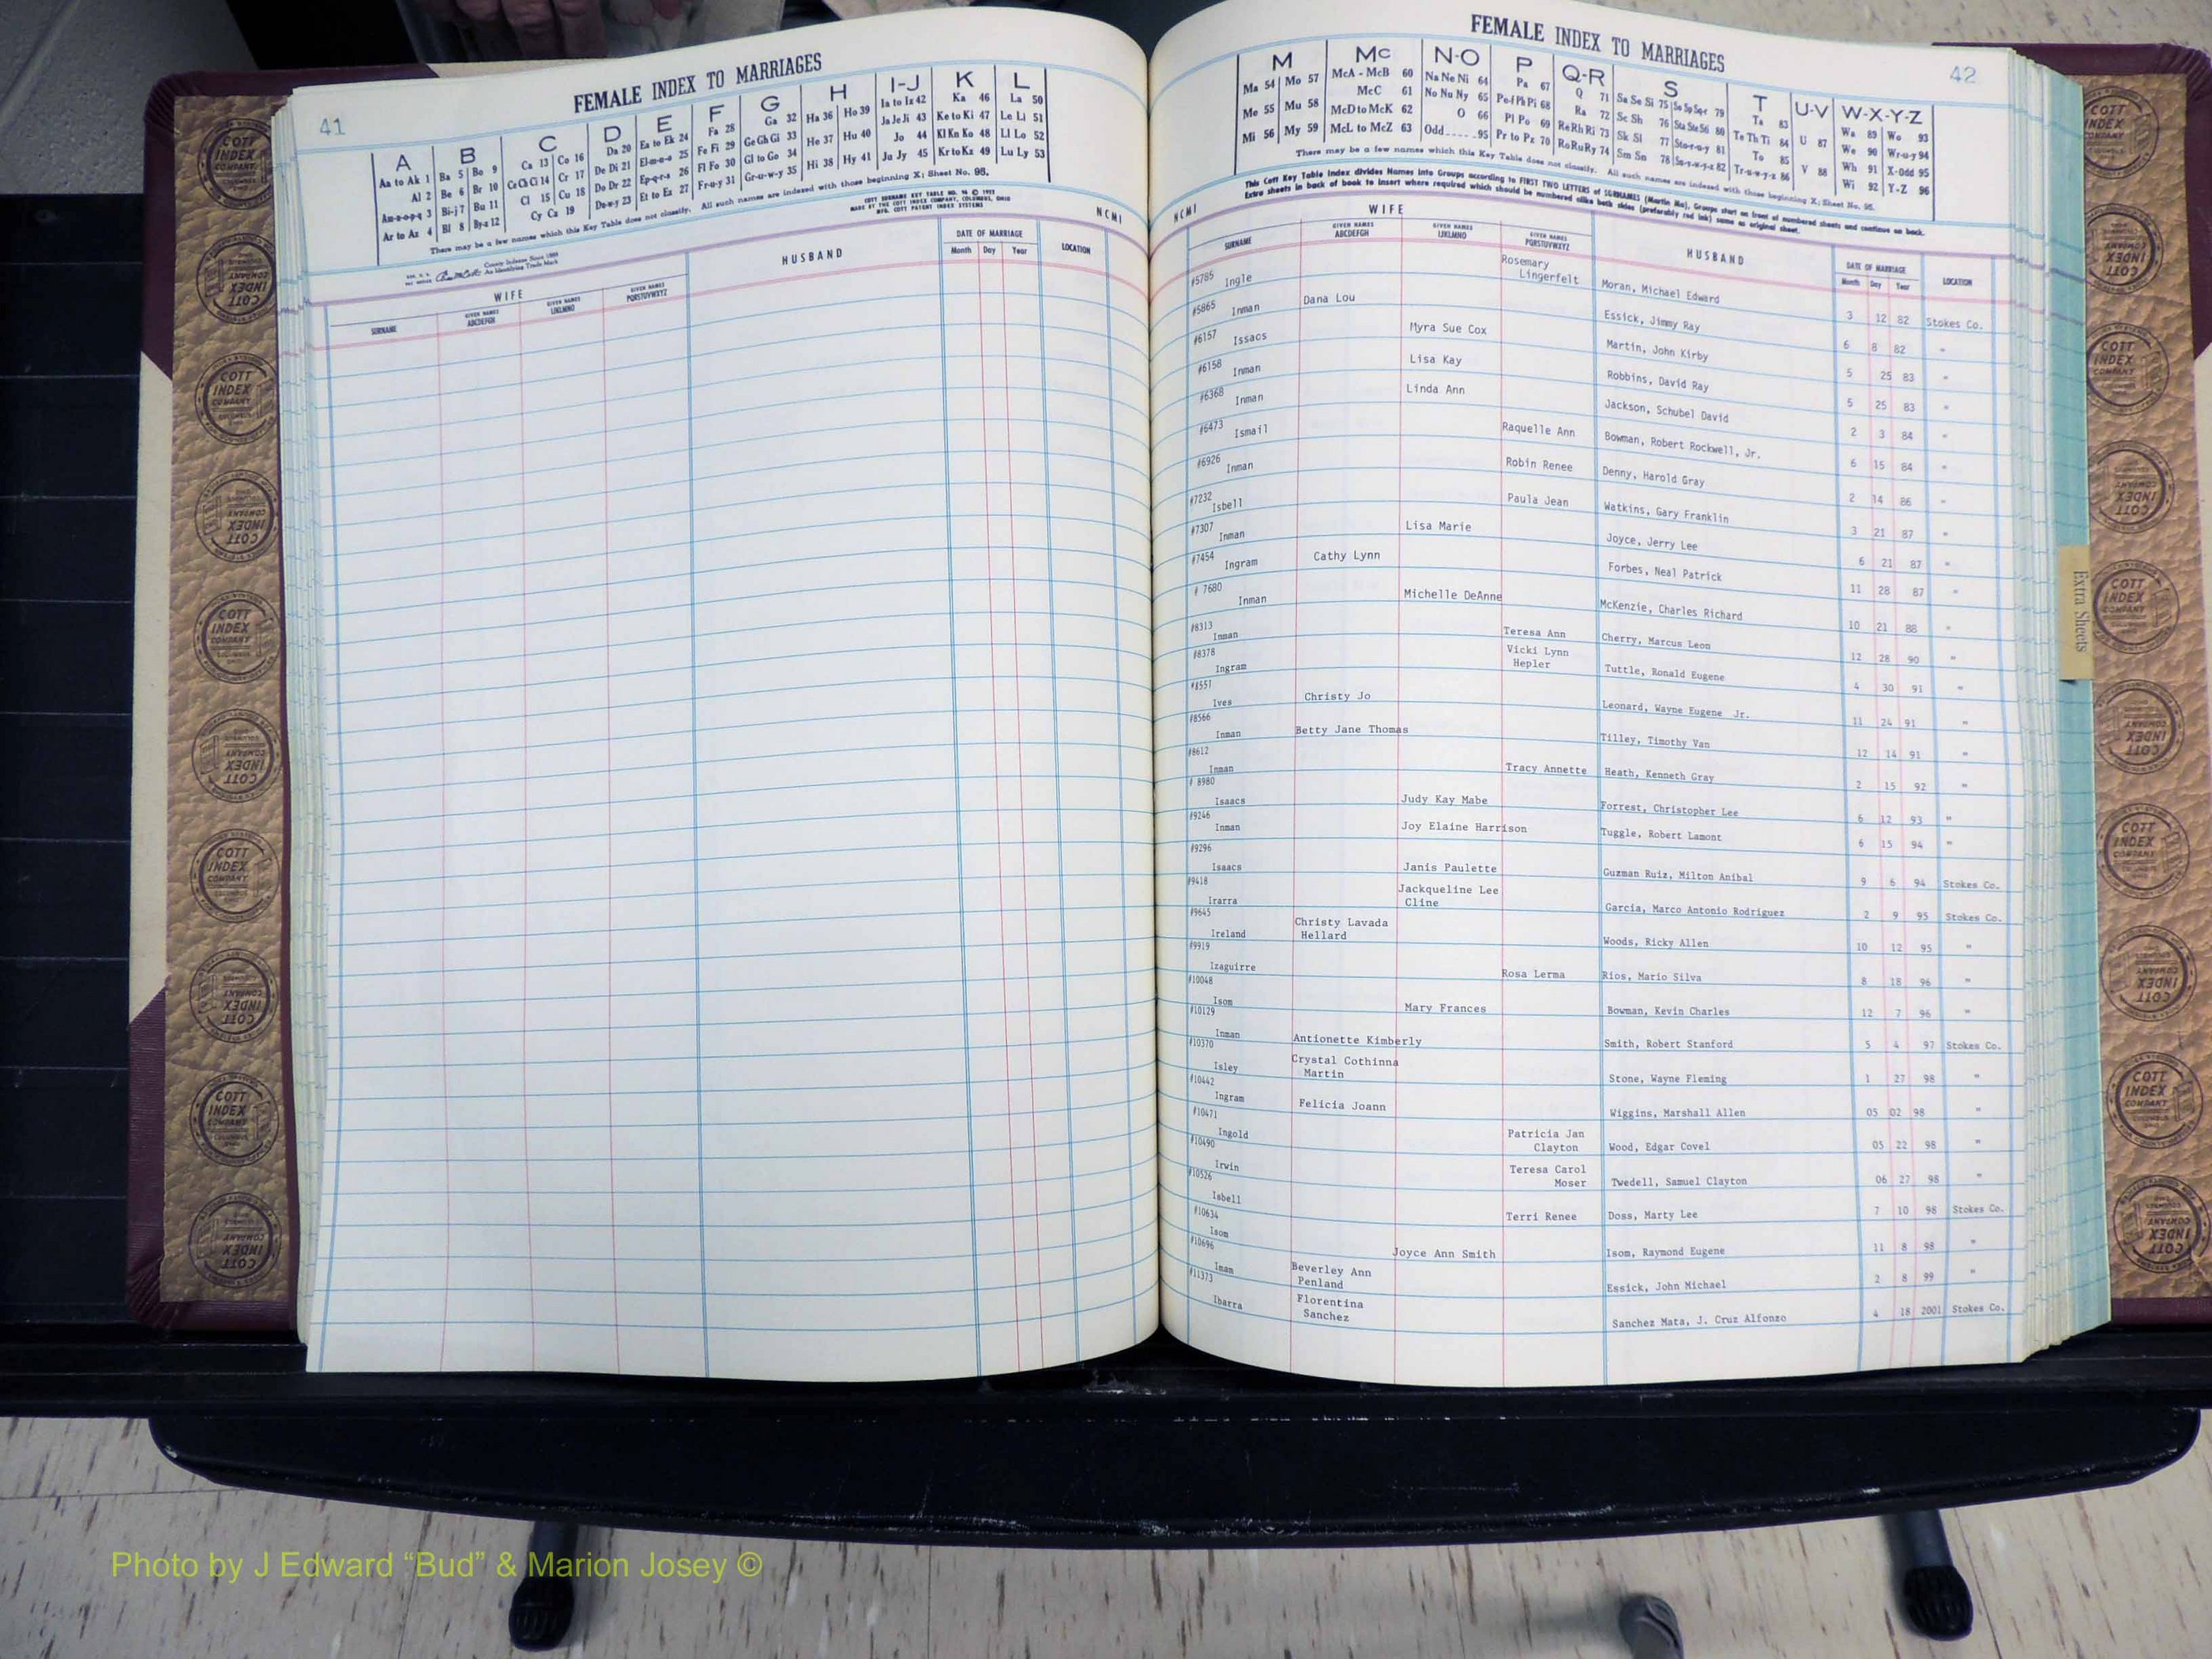 41
FEMALE INDEX TO MARRIAGES
A B C D E F G H I-J K L
Aa to Ak 1 Ba 5 Bo 9 Ca 13 Co 16 Da 20 Ea to Ek 24 Fa 28 Ga 32 Ha 36 Ho 39 Ia to Iz 42 Ka 46 La 50
Al 2 Be 6 Br 10 Ce Ch Ci 14 Cr 17 De Di 21 El-m-n-o 25 Fe Fi 29 Ge Gh Gi 33 He 37 Hu 40 Ja Je Ji 43 Ke to Ki 47 Le Li 51
Am-n-o-p-q 3 Bi-j 7 Bu 11 Cl 15 Cu 18 Do Dr 22 Ep-q-r-s 26 Fl Fo 30 Gl to Go 34 Hi 38 Hy 41 Jo 44 Kl Kn Ko 48 Ll Lo 52
Ar to Az 4 Bl 8 By-z 12 Cy Cz 19 Du-w-y 23 Et to Ez 27 Fr-u-y 31 Gr-u-w-y 35 Ju Jy 45 Kr to Kz 49 Lu Ly 53
There may be a few names which this Key Table does not classify. All such names are indexed with those beginning X; Sheet No. 95.
County Indexes Since 1888
An Identifying Trade Mark
COTT SURNAME KEY TABLE NO. 96 © 1952
MADE BY THE COTT INDEX COMPANY, COLUMBUS, OHIO
MFG. COTT PATENT INDEX SYSTEMS
NCMI
WIFE
HUSBAND
DATE OF MARRIAGE
LOCATION
SURNAME
GIVEN NAMES ABCDEFGH
GIVEN NAMES IJKLMNO
GIVEN NAMES PQRSTUVWXYZ
Month Day Year
FEMALE INDEX TO MARRIAGES
42
M Mc N-O P Q-R S T U-V W-X-Y-Z
Ma 54 Mo 57 McA - McB 60 Na Ne Ni 64 Pa 67 Q 71 Sa Se Si 75 79 Ta 83 U 87 Wa 89 Wo 93
Me 55 Mu 58 McC 61 No Nu Ny 65 Pe-f Ph Pi 68 Ra 72 Sc Sh 76 80 Te Th Ti 84 V 88 We 90 Wr-u-y 94
Mi 56 My 59 McD to McK 62 O 66 Pl Po 69 Re Rh Ri 73 Sk Sl 77 Sto-r-u-y 81 To 85 Wh 91 X-Odd 95
McL to McZ 63 Odd 95 Pr to Pz 70 Ro Ru Ry 74 Sm Sn 78 82 Tr-u-w-y-z 86 Wi 92 Y-Z 96
There may be a few names which this Key Table does not classify. All such names are indexed with those beginning X; Sheet No. 95.
This Cott Key Table Index divides Names into Groups according to FIRST TWO LETTERS of SURNAMES (Martin Ma). Groups start on front of numbered sheets and continue on back.
Extra sheets in back of book to insert where required which should be numbered alike both sides (preferably red ink) same as original sheet.
NCMI
WIFE
SURNAME
GIVEN NAMES ABCDEFGH
GIVEN NAMES IJKLMNO
GIVEN NAMES PQRSTUVWXYZ
HUSBAND
DATE OF MARRIAGE
Month Day Year
LOCATION
#5785 Ingle Rosemary Lingerfelt Moran, Michael Edward 3 12 82 Stokes Co.
#5865 Inman Dana Lou Essick, Jimmy Ray 6 8 82 "
#6157 Issacs Myra Sue Cox Martin, John Kirby 5 25 83 "
#6158 Inman Lisa Kay Robbins, David Ray 5 25 83 "
#6368 Inman Linda Ann Jackson, Schubel David 2 3 84 "
#6473 Ismail Raquelle Ann Bowman, Robert Rockwell, Jr. 6 15 84 "
#6926 Inman Robin Renee Denny, Harold Gray 2 14 86 "
#7232 Isbell Paula Jean Watkins, Gary Franklin 3 21 87 "
#7307 Inman Lisa Marie Joyce, Jerry Lee 6 21 87 "
#7454 Ingram Cathy Lynn Forbes, Neal Patrick 11 28 87 "
# 7680 Inman Michelle DeAnne McKenzie, Charles Richard 10 21 88 "
#8313 Inman Teresa Ann Cherry, Marcus Leon 12 28 90 "
#8378 Ingram Vicki Lynn Hepler Tuttle, Ronald Eugene 4 30 91 "
#8551 Ives Christy Jo Leonard, Wayne Eugene Jr. 11 24 91 "
#8566 Inman Betty Jane Thomas Tilley, Timothy Van 12 14 91 "
#8612 Inman Tracy Annette Heath, Kenneth Gray 2 15 92 "
# 8980 Isaacs Judy Kay Mabe Forrest, Christopher Lee 6 12 93 "
#9246 Inman Joy Elaine Harrison Tuggle, Robert Lamont 6 15 94 "
#9296 Isaacs Janis Paulette Guzman Ruiz, Milton Anibal 9 6 94 Stokes Co.
#9418 Irarra Jackqueline Lee Cline Garcia, Marco Antonio Rodriguez 2 9 95 Stokes Co.
#9645 Ireland Christy Lavada Hellard Woods, Ricky Allen 10 12 95 "
#9919 Izaguirre Rosa Lerma Rios, Mario Silva 8 18 96 "
#10048 Isom Mary Frances Bowman, Kevin Charles 12 7 96 "
#10129 Inman Antionette Kimberly Smith, Robert Stanford 5 4 97 Stokes Co.
#10370 Isley Crystal Cothinna Martin Stone, Wayne Fleming 1 27 98 "
#10442 Ingram Felicia Joann Wiggins, Marshall Allen 05 02 98 "
#10471 Ingold Patricia Jan Clayton Wood, Edgar Covel 05 22 98 "
#10490 Irwin Teresa Carol Moser Twedell, Samuel Clayton 06 27 98 "
#10526 Isbell Terri Renee Doss, Marty Lee 7 10 98 Stokes Co.
#10634 Isom Joyce Ann Smith Isom, Raymond Eugene 11 8 98 "
#10696 Imam Beverley Ann Penland Essick, John Michael 2 8 99 "
#11373 Ibarra Florentina Sanchez Sanchez Mata, J. Cruz Alfonzo 4 18 2001 Stokes Co.
Extra Sheets
COTT INDEX COMPANY
Photo by J Edward “Bud” & Marion Josey ©